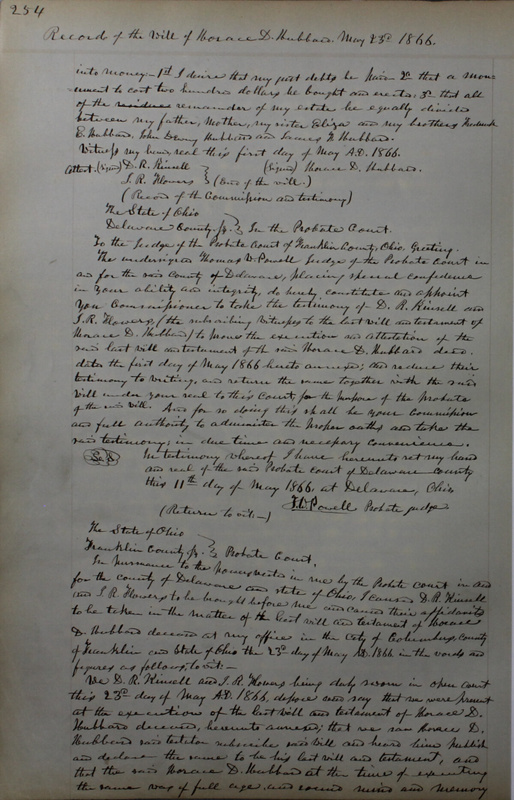 254
Record of the Will of Horace D. Hubbard. May 23d 1866.
into money - 1st I desire that my just debts be paid 2d that a mon-
ument to cost two hundred dollars be bought and erected; 3d that all
of the residue remainder of my estate be equally divided
between my father, Mother, my sister Eliza and my brothers Frederick
E Hubbard, John Denny Hubbard and James H Hubbard.
Witness my hand seal this first day of May A.D. 1866.
Attest. (Signed) D. R. Kinsell } (Signed) Horace D. Hubbard.
J. R. Flowers } (End of the will.)
(Record of the Commission and testimony)
The State of Ohio }
Delaware County ss. } In the Probate Court.
To the Judge of the Probate Court of Franklin County, Ohio, Greeting.
The undersigned Thomas W. Powell Judge of the Probate Court in
and for the said County of Delaware, placing special confidence
in your ability and integrity, do hereby constitute and appoint
you Commissioner to take the testimony of D. R. Kinsell and
J. R. Flowers, (the subscribing Witnesses to the last will and testament of
Horace D. Hubbard) to prove the execution and attestation of the
said last will and testament of the said Horace D. Hubbard decd.
dated the first day of May 1866 hereto annexed; and reduce their
testimony to writing, and return the same together with the said
will under your seal to this Court, for the purpose of the probate
of the said will. And for so doing this shall be your Commission
and full authority to administer the proper oaths and take the
said testimony; in due time and necessary convenience.
In testimony whereof I have hereunto set my hand
and seal of the said Probate Court of Delaware County
this 11th day of May 1866. at Delaware, Ohio
T.W. Powell Probate judge
(Return to wit:-)
The State of Ohio }
Franklin County ss. } Probate Court.
In pursuance to the in me by the Probate court in and
for the county of Delaware and state of Ohio, I caused D. R. Kinsell
and J. R. Flowers to be brought before me and caused their affidavits
to be taken in the matter of the last will and testament of Horace
D. Hubbard deceased at my office in the City of Columbus, County
of Franklin and State of Ohio the 23d day of May A.D. 1866 in the words and
figures as follows, to wit:-
We D. R. Kinsell and J. R. Flowers being duly sworn in open court
this 23d day of May A.D. 1866, depose and say that we were present
at the execution of the last will and testament of Horace D.
Hubbard deceased, hereunto annexed; that we saw Horace D.
Hubbard said testator subscribe said will and heard him publish
and declare the same to be his last will and testament, and
that the said Horace D. Hubbard at the time of executing
the same was of full age and sound mind and memory